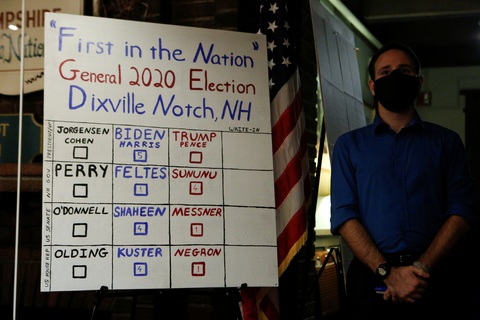 MPSHIRE
"First in the Nation"
General 2020 Election
Dixville Notch, NH
PRESIDENT JORGENSEN COHEN BIDEN HARRIS 5 TRUMP PENCE WRITE-IN
NH GOV PERRY FELTES 1 SUNUNU 4
US SENATE O'DONNELL SHAHEEN 4 MESSNER 1
US HOUSE REP. OLDING KUSTER 4 NEGRON 1